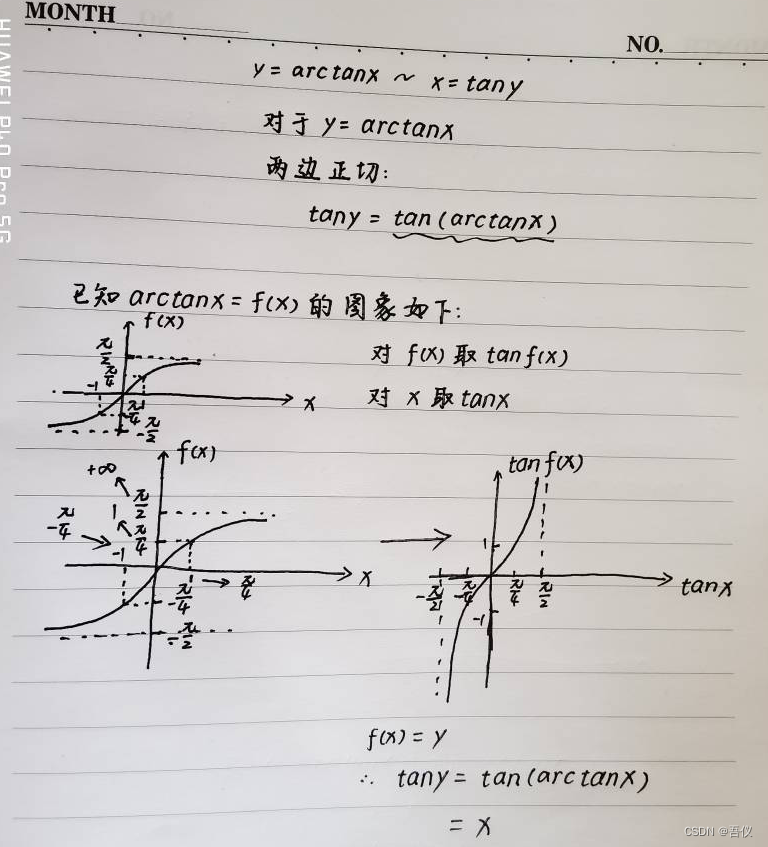 MONTH
NO.
HUAWEI P40 Pro 5G
y = arctanx ~ x = tany
对于 y = arctanx
两边正切:
tany = tan(arctanx)
已知 arctanx = f(x) 的图象如下:
f(x)
π/2
π/4
-1
1
x
-π/4
-π/2
对 f(x) 取 tanf(x)
对 x 取 tanx
f(x)
+∞
π/2
1
π/4
-π/4
-1
x
π/4
-π/4
-π/2
tanf(x)
1
tanx
-π/2
-π/4
π/4
π/2
-1
f(x) = y
∴ tany = tan(arctanx)
= x
CSDN @吾仪